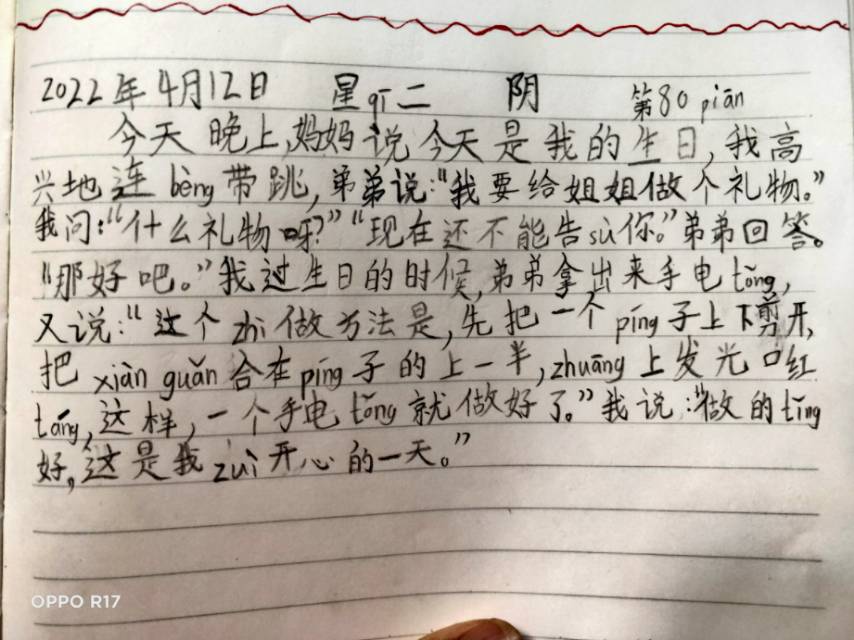 2022年4月12日 星qī二 阴 第80piān
今天晚上,妈妈说今天是我的生日,我高
兴地连bèng带跳,弟弟说:“我要给姐姐做个礼物。”
我问:“什么礼物呀?”“现在还不能告sù你。”弟弟回答。
“那好吧。”我过生日的时候,弟弟拿出来手电tǒng,
又说:“这个zhì做方法是,先把一个píng子上下剪开,
把xiàn guǎn合在píng子的上一半,zhuāng上发光口红
táng,这样,一个手电tǒng就做好了。”我说:“做的tǐng
好,这是我zuì开心的一天。”
OPPO R17